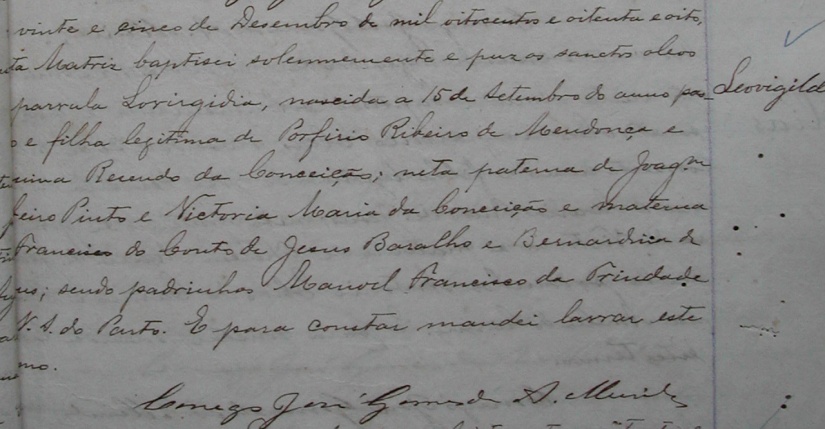 vinte e cinco de Desembro de mil oitocentos e oitenta e oito,
ta Matriz baptisei solemnemente e puz os sanctos oleos
parvula Lovirgidia, nascida a 15 de Setembro do anno pas-
Leovigild
o e filha legitima de Porfirio Ribeiro de Mendonça e
Resendo da Conceição; neta paterna de Joaqm
beiro Pinto e Victoria Maria da Conceição e materna
Francisco do Couto de Jesus Baralho e Bernardina de
sus; sendo padrinhos Manoel Francisco da Trindade
N. S. do Parto. E para constar mandei lavrar este
mo.
Conego José Gomes de A.